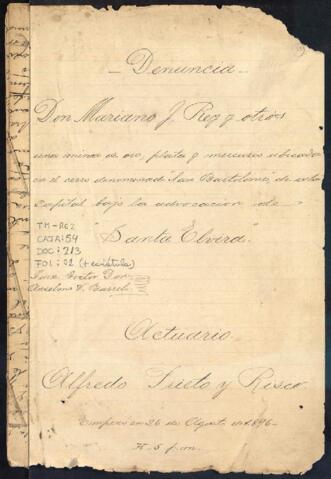 - Denuncia -
Don Mariano J. Rey y otros
una mina de oro, plata y mercurio ubicada
en el cerro denominado "San Bartolomé" de esta
Capital bajo la advocacion de
"Santa Elvira".
TM-RE2
CAJA: 54
DOC: 213
FOL: 02 (+ carátula)
Juez Doctor Don
Anselmo V. Barreto
Actuario.
Alfredo Prieto y Risco
Empieza en 26 de Agosto de 1896-
H. 5 p.m.